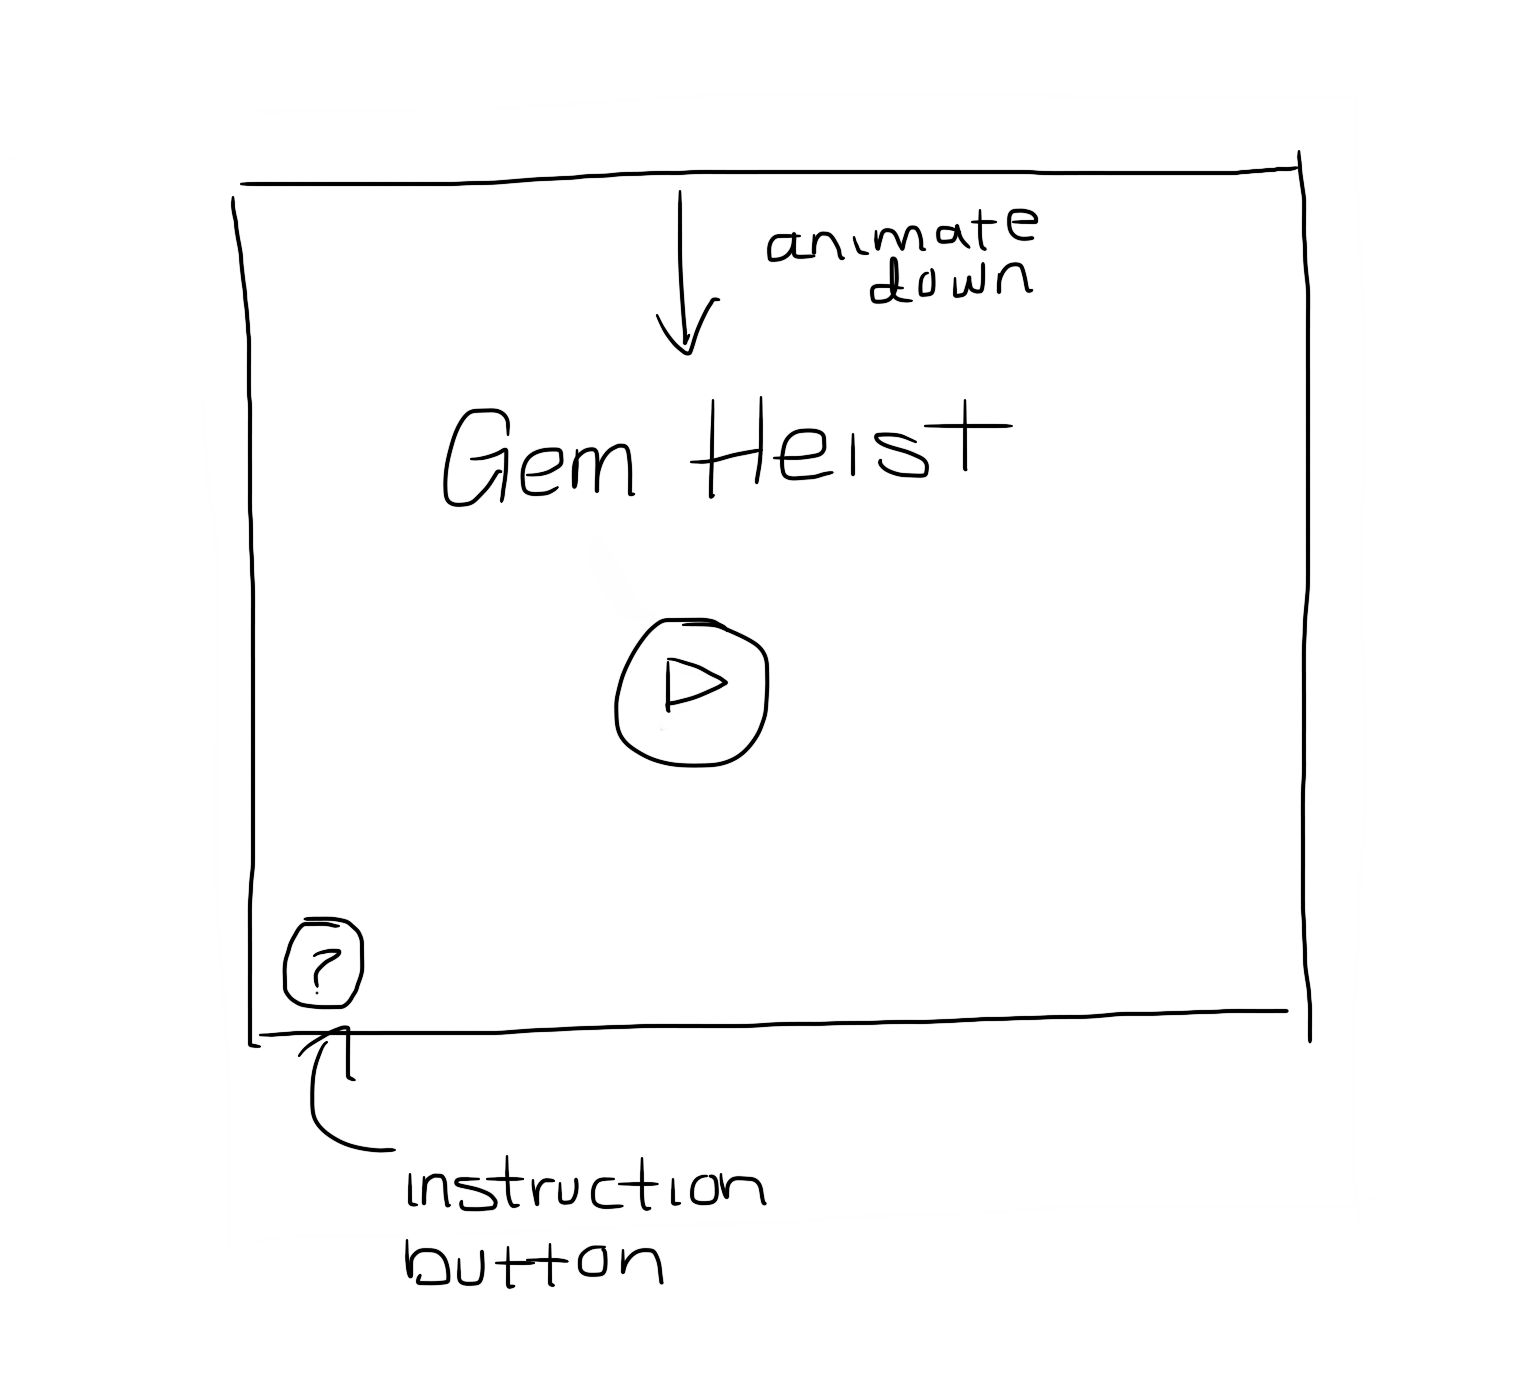 animate
down
Gem Heist
?
instruction
button